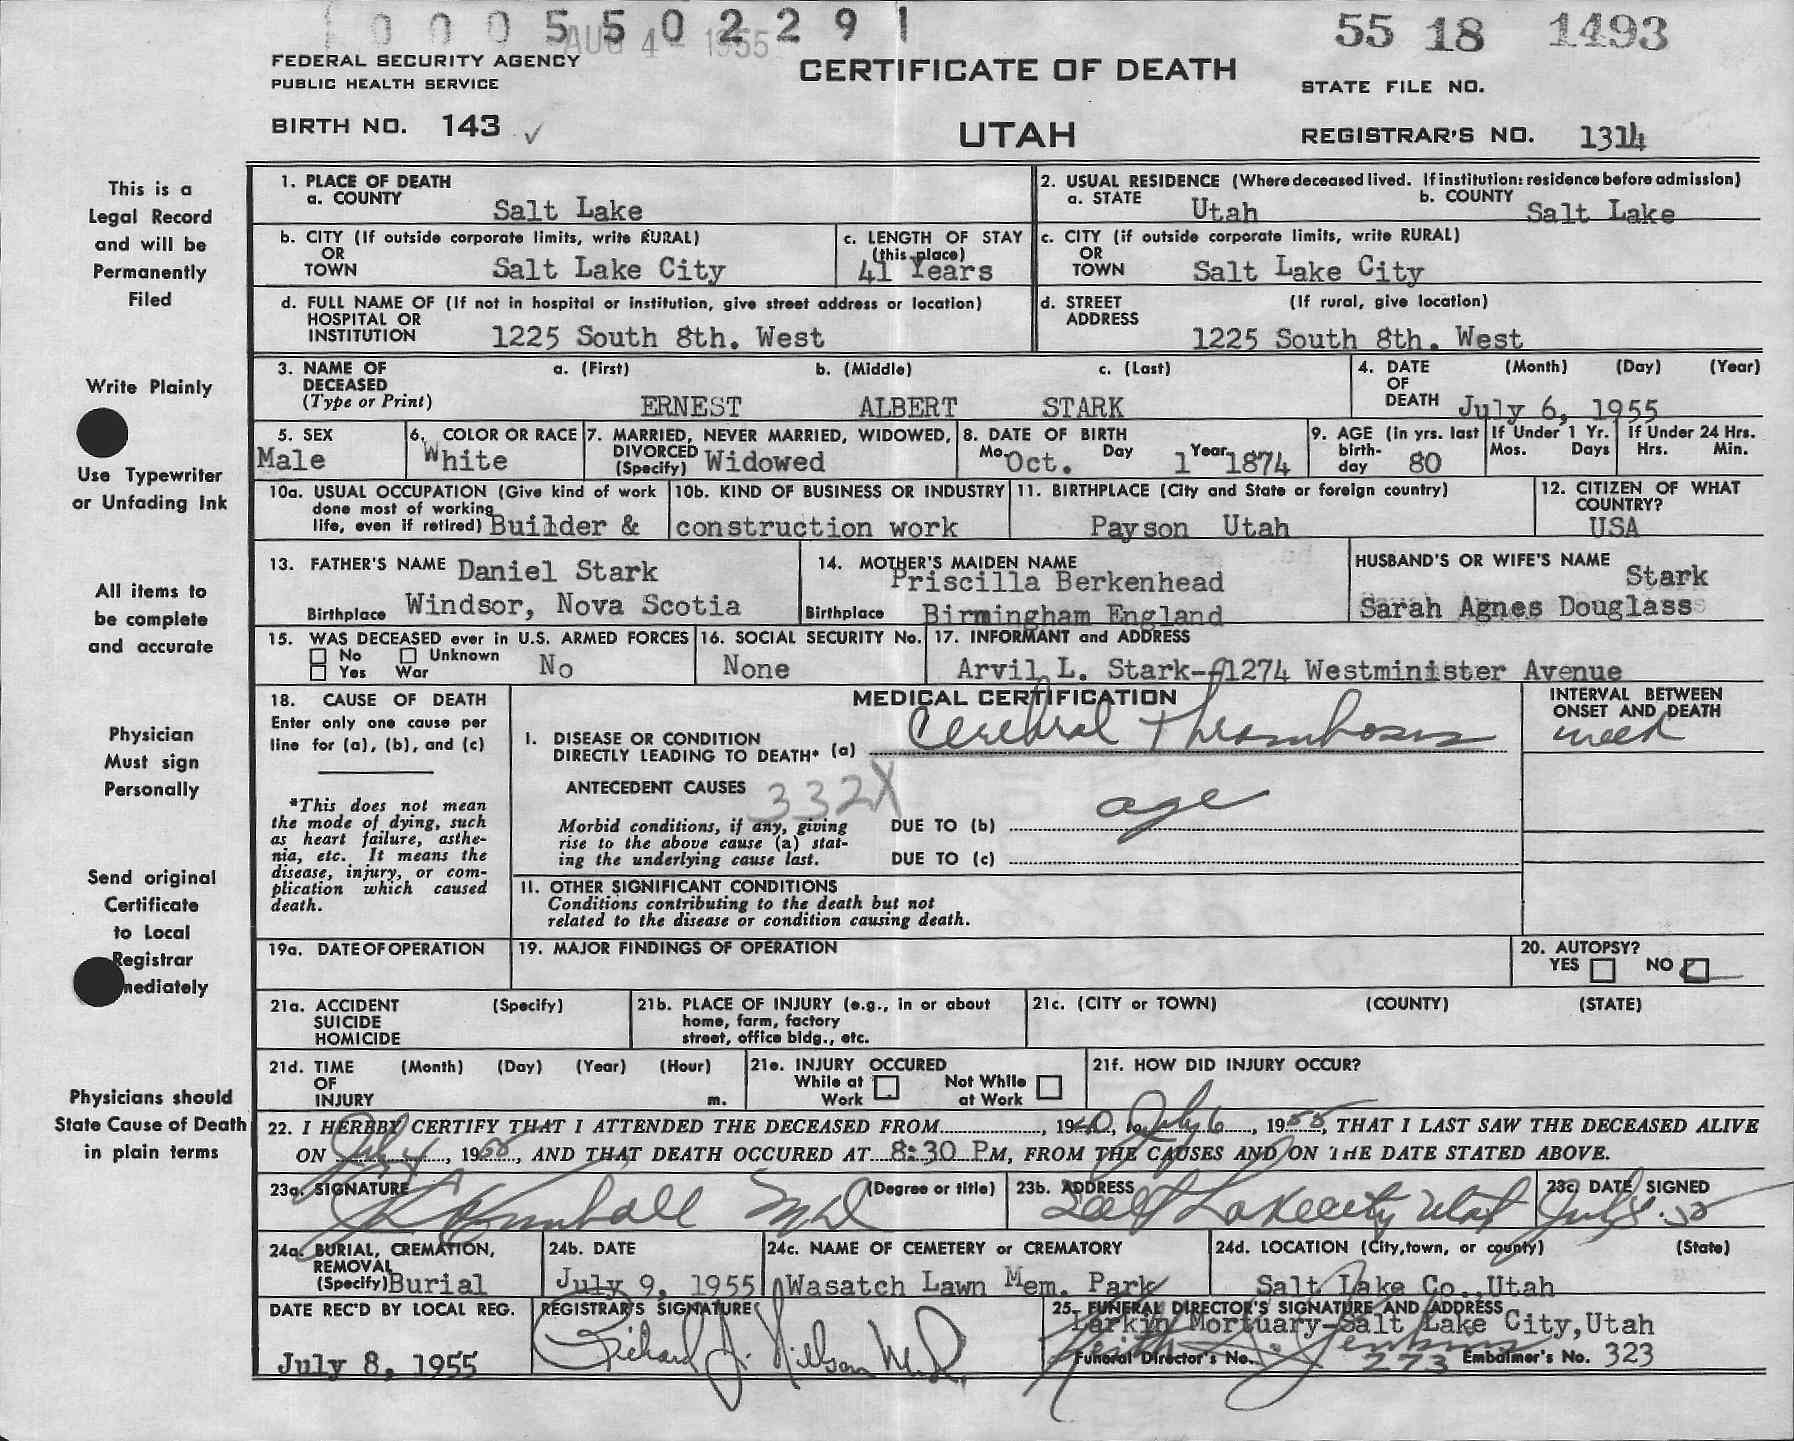 0 0 0 5 5 0 2 2 9 1
AUG 4 - 1955
55 18 1493
FEDERAL SECURITY AGENCY
PUBLIC HEALTH SERVICE
CERTIFICATE OF DEATH
STATE FILE NO.
BIRTH NO. 143 ✓
UTAH
REGISTRAR'S NO. 1314
This is a
Legal Record
and will be
Permanently
Filed
Write Plainly
Use Typewriter
or Unfading Ink
All items to
be complete
and accurate
Physician
Must sign
Personally
Send original
Certificate
to Local
Registrar
mediately
Physicians should
State Cause of Death
in plain terms
1. PLACE OF DEATH
a. COUNTY Salt Lake
2. USUAL RESIDENCE (Where deceased lived. If institution: residence before admission)
a. STATE Utah b. COUNTY Salt Lake
b. CITY (If outside corporate limits, write RURAL)
OR
TOWN Salt Lake City
c. LENGTH OF STAY
(this place)
41 Years
c. CITY (if outside corporate limits, write RURAL)
OR
TOWN Salt Lake City
d. FULL NAME OF (If not in hospital or institution, give street address or location)
HOSPITAL OR
INSTITUTION 1225 South 8th. West
d. STREET (If rural, give location)
ADDRESS
1225 South 8th. West
3. NAME OF a. (First) b. (Middle) c. (Last)
DECEASED
(Type or Print) ERNEST ALBERT STARK
4. DATE (Month) (Day) (Year)
OF
DEATH July 6, 1955
5. SEX
Male
6. COLOR OR RACE
White
7. MARRIED, NEVER MARRIED, WIDOWED,
DIVORCED
(Specify) Widowed
8. DATE OF BIRTH
Mo. Oct. Day 1 Year 1874
9. AGE (in yrs. last
birth-
day 80
If Under 1 Yr.
Mos. Days
If Under 24 Hrs.
Hrs. Min.
10a. USUAL OCCUPATION (Give kind of work
done most of working
life, even if retired) Builder &
10b. KIND OF BUSINESS OR INDUSTRY
construction work
11. BIRTHPLACE (City and State or foreign country)
Payson Utah
12. CITIZEN OF WHAT
COUNTRY?
USA
13. FATHER'S NAME Daniel Stark
Birthplace Windsor, Nova Scotia
14. MOTHER'S MAIDEN NAME
Priscilla Berkenhead
Birthplace Birmingham England
HUSBAND'S OR WIFE'S NAME
Stark
Sarah Agnes Douglass
15. WAS DECEASED ever in U.S. ARMED FORCES
No Unknown
Yes War No
16. SOCIAL SECURITY No.
None
17. INFORMANT and ADDRESS
Arvil L. Stark-1274 Westminister Avenue
18. CAUSE OF DEATH
Enter only one cause per
line for (a), (b), and (c)
*This does not mean
the mode of dying, such
as heart failure, asthe-
nia, etc. It means the
disease, injury, or com-
plication which caused
death.
MEDICAL CERTIFICATION
I. DISEASE OR CONDITION
DIRECTLY LEADING TO DEATH* (a) Cerebral Thrombosis
INTERVAL BETWEEN
ONSET AND DEATH
week
ANTECEDENT CAUSES 332X
Morbid conditions, if any, giving
rise to the above cause (a) stat-
ing the underlying cause last.
DUE TO (b) age
DUE TO (c)
II. OTHER SIGNIFICANT CONDITIONS
Conditions contributing to the death but not
related to the disease or condition causing death.
19a. DATE OF OPERATION
19. MAJOR FINDINGS OF OPERATION
20. AUTOPSY?
YES NO
21a. ACCIDENT (Specify)
SUICIDE
HOMICIDE
21b. PLACE OF INJURY (e.g., in or about
home, farm, factory
street, office bldg., etc.
21c. (CITY or TOWN) (COUNTY) (STATE)
21d. TIME (Month) (Day) (Year) (Hour)
OF
INJURY m.
21e. INJURY OCCURED
While at Not While
Work at Work
21f. HOW DID INJURY OCCUR?
22. I HEREBY CERTIFY THAT I ATTENDED THE DECEASED FROM, 1940, to July 6, 1955, THAT I LAST SAW THE DECEASED ALIVE
ON July 4, 1955, AND THAT DEATH OCCURED AT 8:30 P.M, FROM THE CAUSES AND ON THE DATE STATED ABOVE.
23a. SIGNATURE (Degree or title)
Kimball MD
23b. ADDRESS
Salt Lake city Utah
23c. DATE SIGNED
July 8. 55
24a. BURIAL, CREMATION,
REMOVAL
(Specify) Burial
24b. DATE
July 9, 1955
24c. NAME OF CEMETERY or CREMATORY
Wasatch Lawn Mem. Park
24d. LOCATION (City, town, or county) (State)
Salt Lake Co., Utah
DATE REC'D BY LOCAL REG.
July 8, 1955
REGISTRAR'S SIGNATURE
Richard J. Nillson M.D.
25. FUNERAL DIRECTOR'S SIGNATURE AND ADDRESS
Larkin Mortuary-Salt Lake City, Utah
Funeral Director's No. 273 Embalmer's No. 323